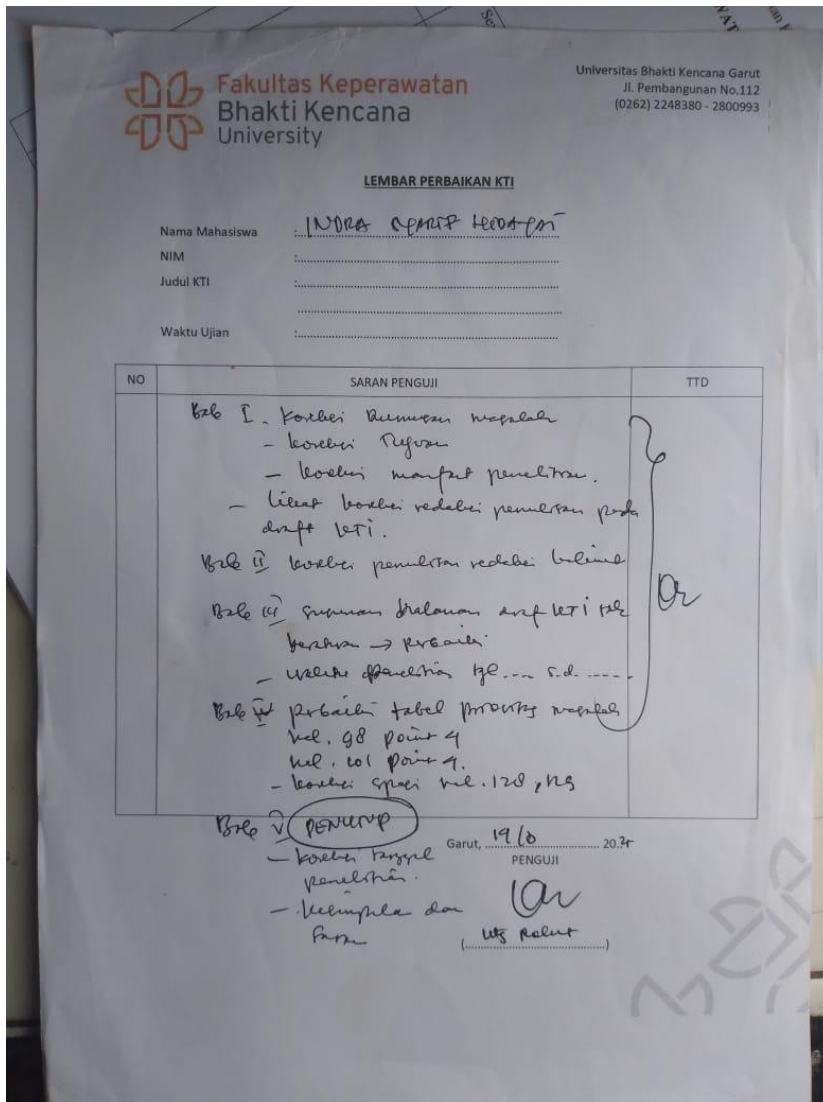 Fakultas Keperawatan
Bhakti Kencana
University
Universitas Bhakti Kencana Garut
Jl. Pembangunan No.112
(0262) 2248380 - 2800993
LEMBAR PERBAIKAN KTI
Nama Mahasiswa : INDRA
NIM :
Judul KTI :
Waktu Ujian :
NO SARAN PENGUJI TTD
Bab I - koreksi Rumusan masalah
- koreksi Tujuan
- koreksi manfaat penelitian.
- lihat koreksi redaksi penulisan pada
draft KTI.
Bab II koreksi penulisan redaksi
Bab III susunan halaman draf KTI
→ perbaiki
- waktu penelitian tgl .... s.d. .....
Bab IV perbaiki tabel prioritas masalah
hal. 98 point 4
hal. 101 point 4.
- koreksi spasi hal. 128,
Bab V PENUTUP
- koreksi tanggal
penelitian.
- kesimpulan dan
saran
Garut, 19/ 20.
PENGUJI